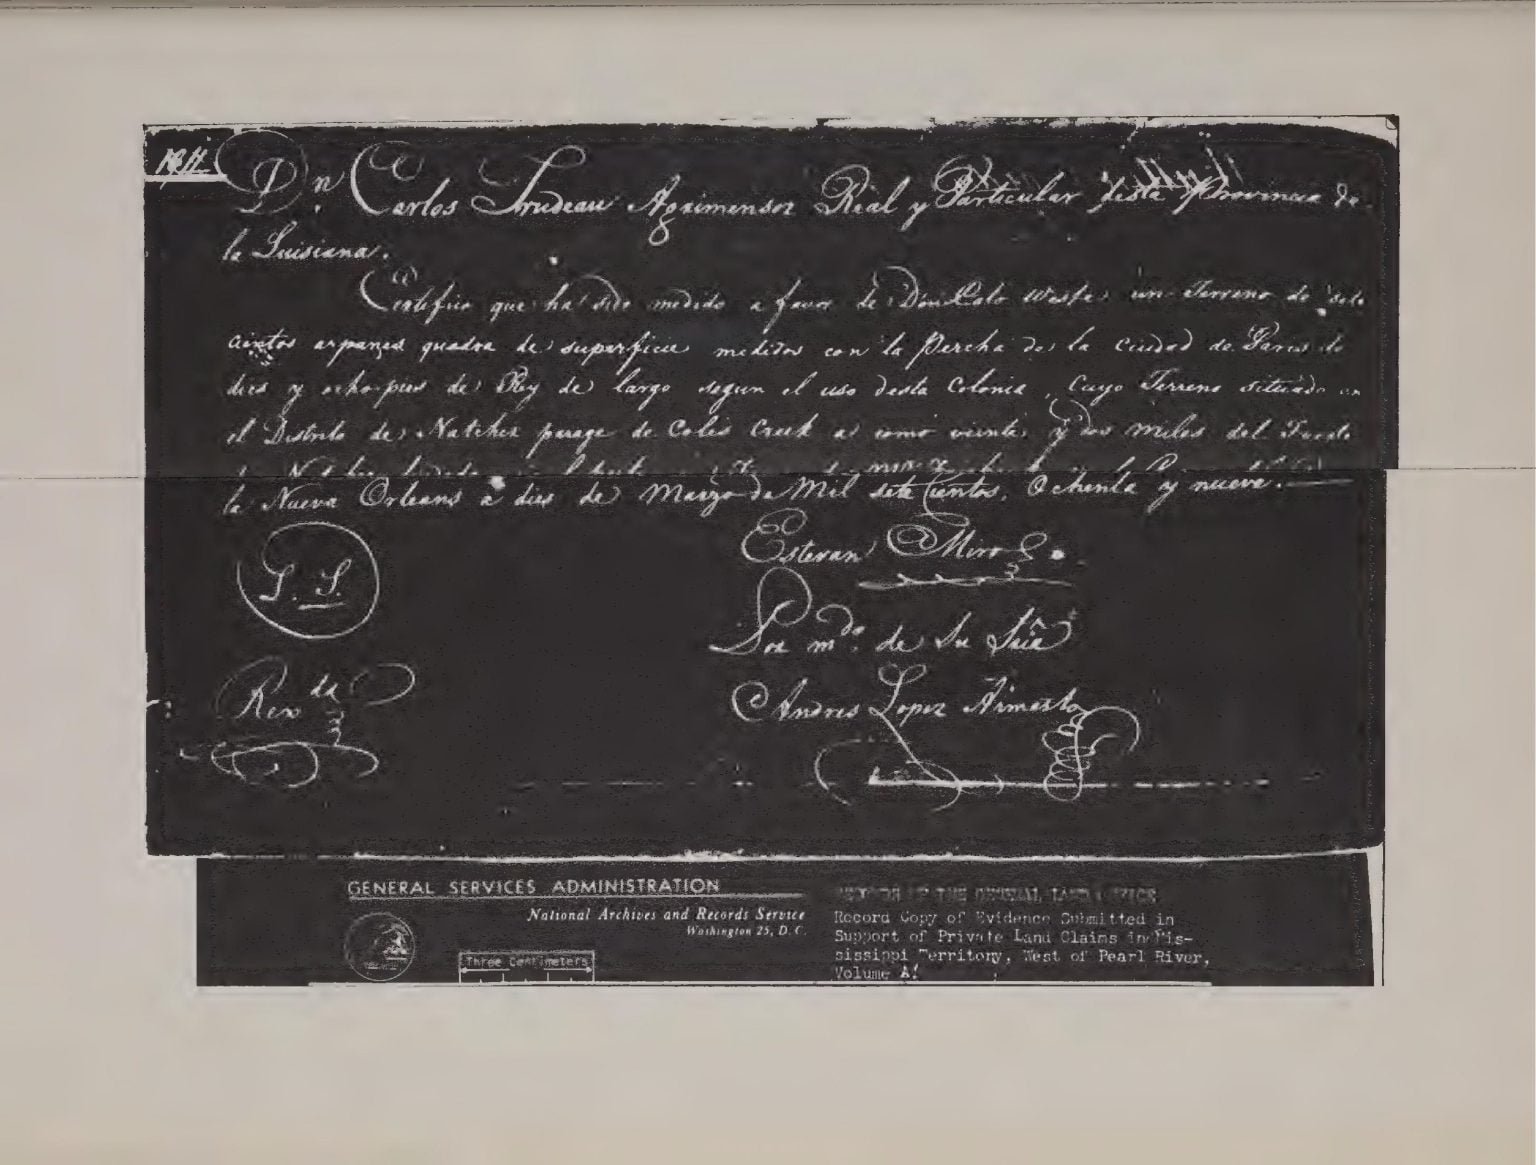 Dn. Carlos Trudeau Agrimensor Real y Particular desta Provincia de
la Luisiana.
Certifico que ha sido medido a favor de Don Cato Weste un Terreno de sete
cientos arpanes quadra de superficie medidos con la Percha de la Ciudad de Paris de
dies y ocho pies de Rey de largo segun el uso desta Colonia, Cuyo Terreno situado en
el Distrito de Natchez parage de Coles Creek a como viente y dos miles del Fuerte
la Nueva Orleans a dies de Marzo de Mil sete Cientos, Ochenta y nueve.
Estevan Miro
G. S.
Por mdo. de Su Sria
Rexda
Andres Lopez Armesto
GENERAL SERVICES ADMINISTRATION
National Archives and Records Service
Washington 25, D. C.
Three Centimeters
RECORDS OF THE GENERAL LAND OFFICE
Record Copy of Evidence Submitted in
Support of Private Land Claims in Mis-
sissippi Territory, West of Pearl River,
Volume A.